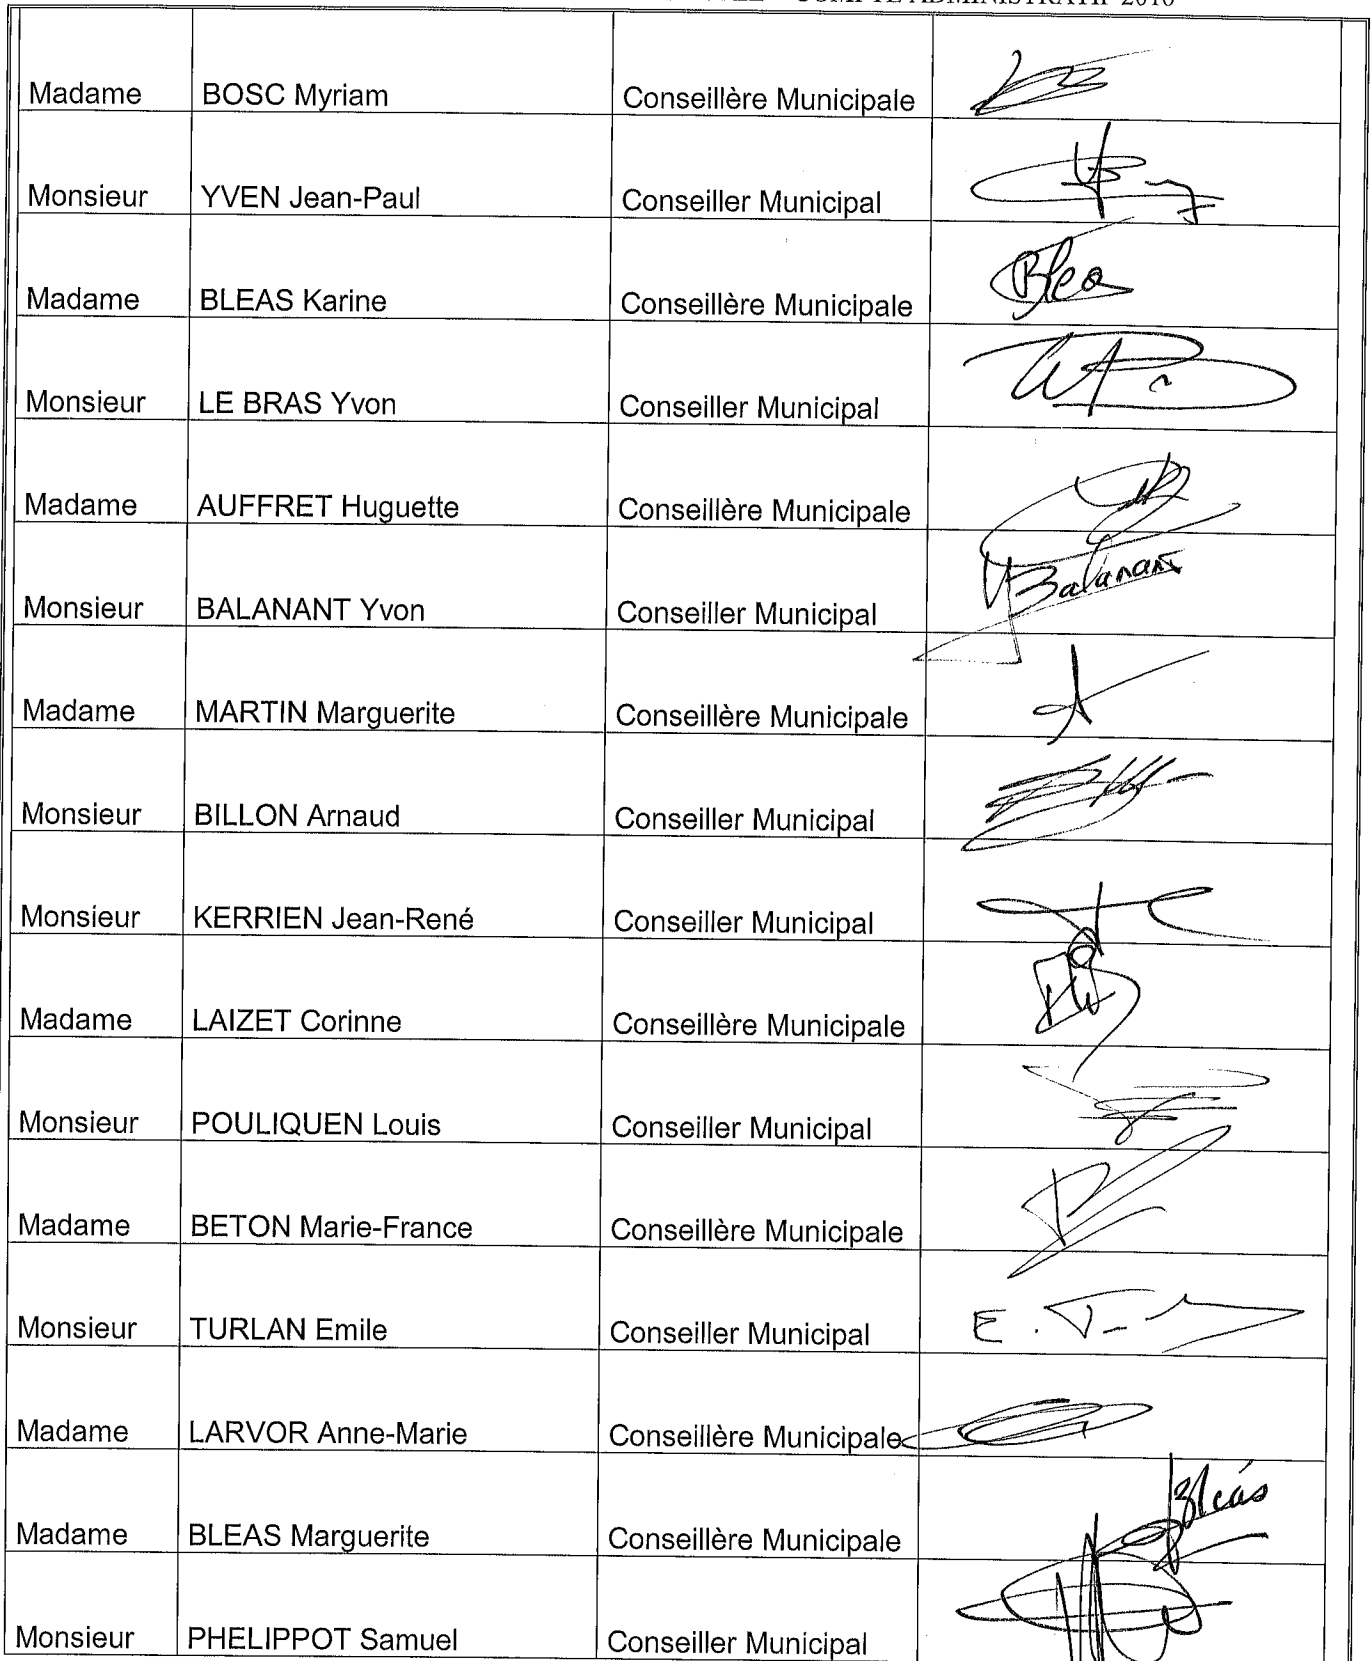 COMPTE ADMINISTRATIF 2010
Madame BOSC Myriam Conseillère Municipale
Monsieur YVEN Jean-Paul Conseiller Municipal
Madame BLEAS Karine Conseillère Municipale Bleas
Monsieur LE BRAS Yvon Conseiller Municipal
Madame AUFFRET Huguette Conseillère Municipale
Monsieur BALANANT Yvon Conseiller Municipal Balanant
Madame MARTIN Marguerite Conseillère Municipale
Monsieur BILLON Arnaud Conseiller Municipal
Monsieur KERRIEN Jean-René Conseiller Municipal
Madame LAIZET Corinne Conseillère Municipale
Monsieur POULIQUEN Louis Conseiller Municipal
Madame BETON Marie-France Conseillère Municipale
Monsieur TURLAN Emile Conseiller Municipal E. T
Madame LARVOR Anne-Marie Conseillère Municipale
Madame BLEAS Marguerite Conseillère Municipale Bléas
Monsieur PHELIPPOT Samuel Conseiller Municipal